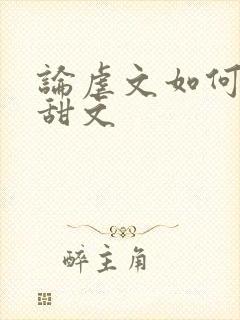 論虐文如何
甜文
醉主角